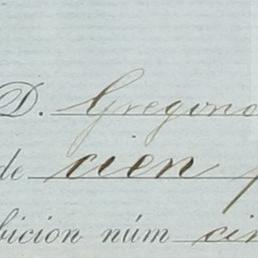 D. Gregorio
de cien
bicion núm cin